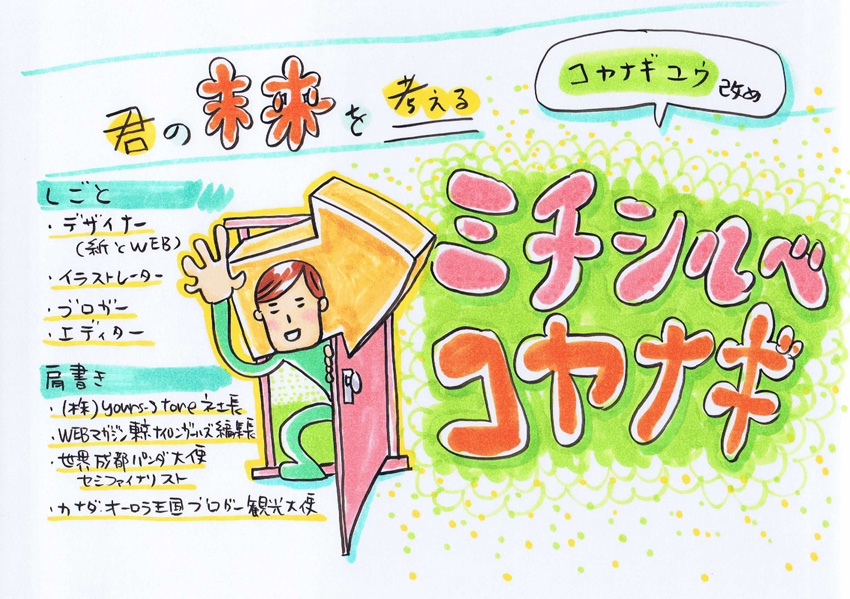 君の未来を考える
コヤナギユウ改め
ミチシルベ
コヤナギ
しごと
・デザイナー
(紙とWEB)
・イラストレーター
・ブロガー
・エディター
肩書き
・(株)yours-store社長
・WEBマガジン東京ナイロンガールズ編集長
・世界成都パンダ大使
セミファイナリスト
・カナダ・オーロラ王国ブロガー観光大使